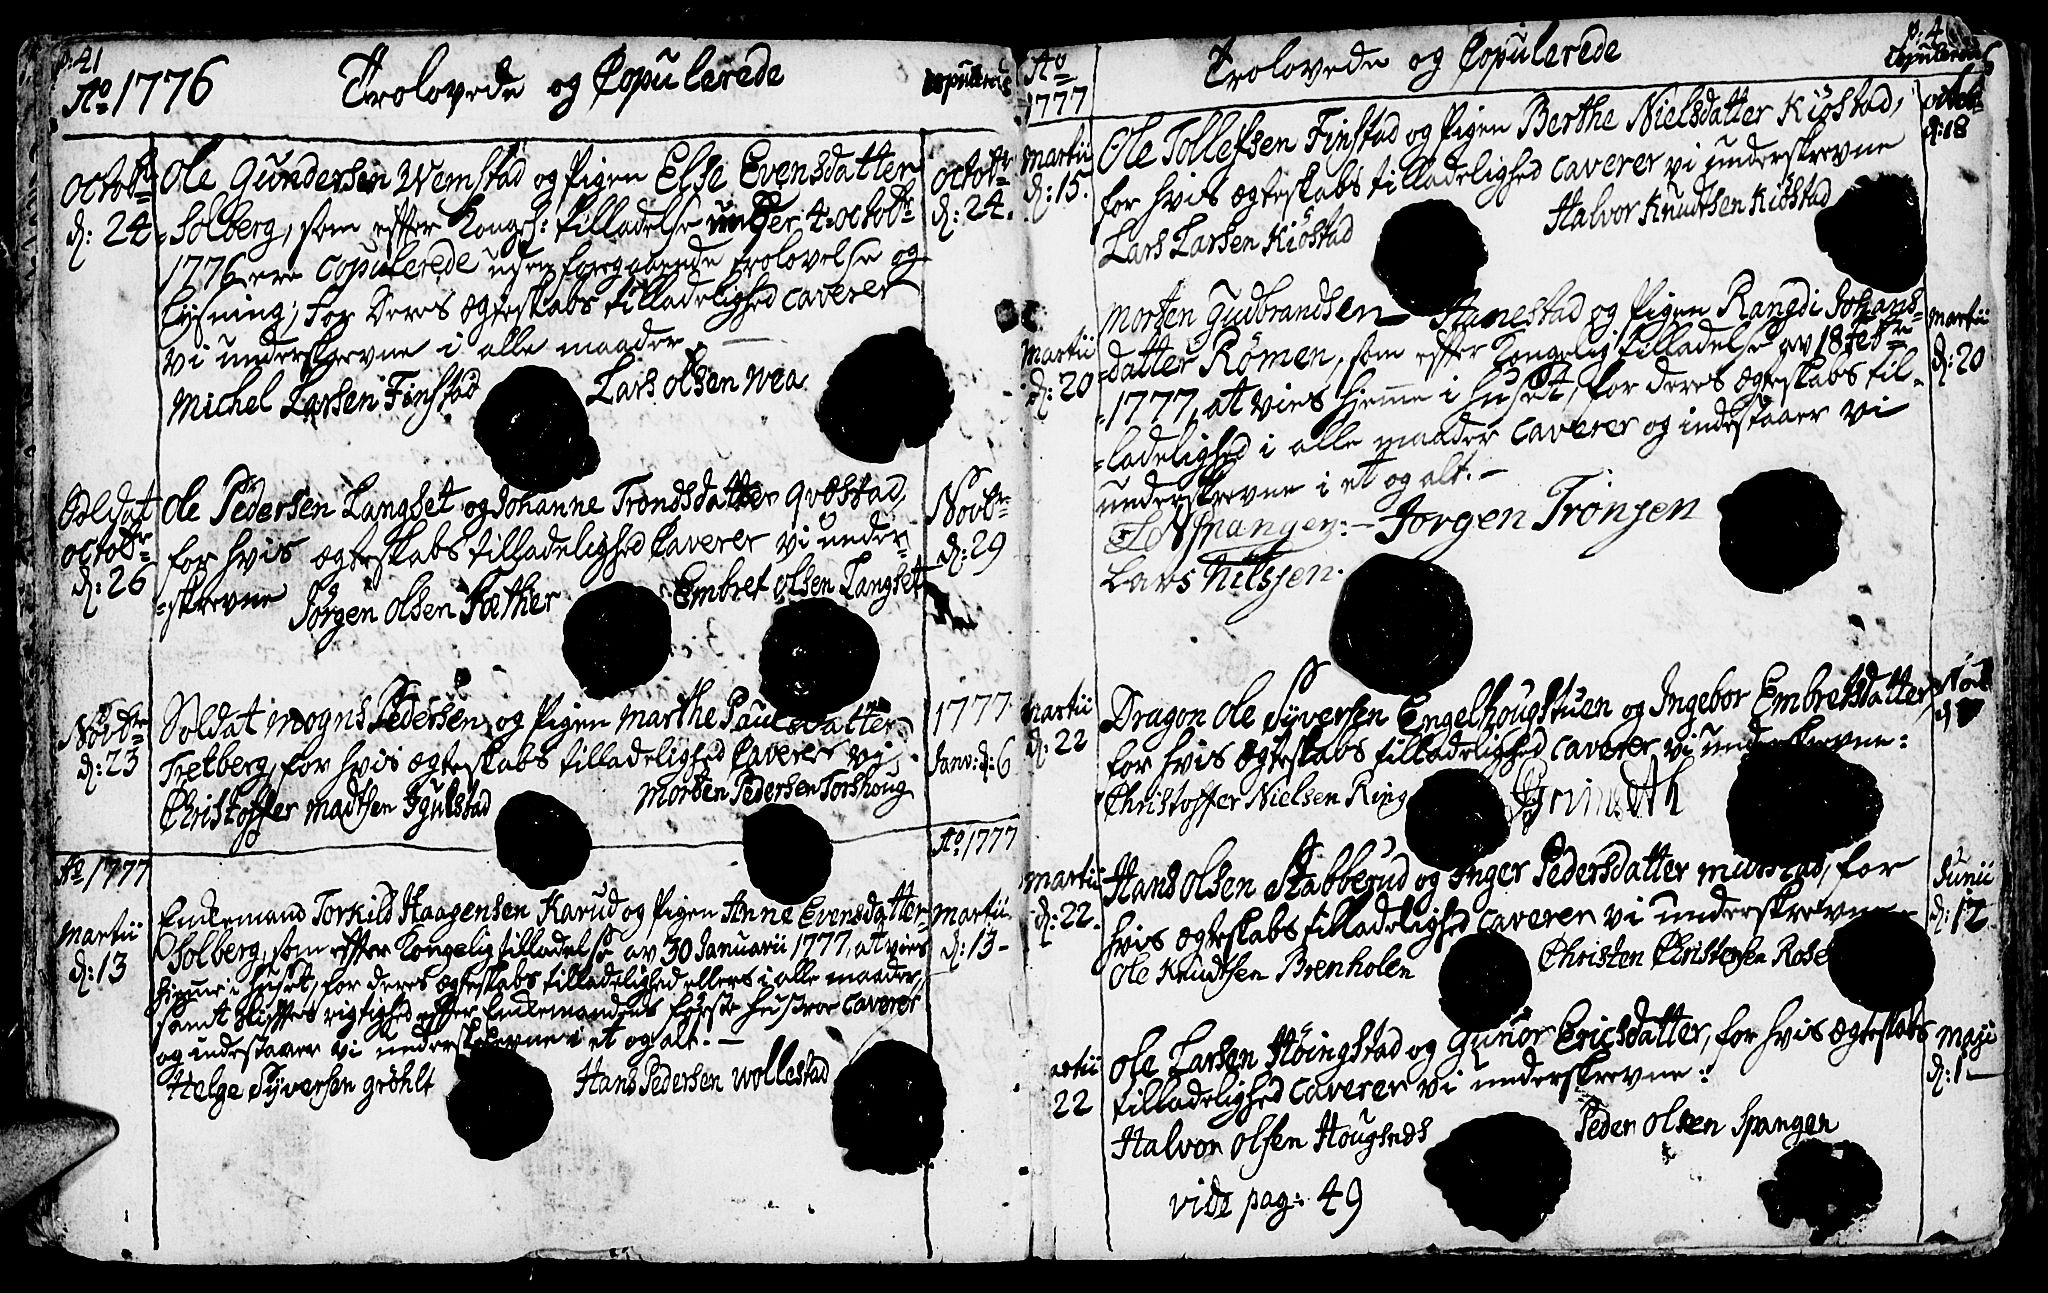 p: 41
Ao 1776 Trolovede og Copulerede
octobr d: 24
Ole Gundersen Wemstad og Pigen Else Evensdatter
Solberg, som efter Kongel: tilladelse under 4 octobr
1776 ere copulerede uden foregaaende trolovelse og
lysning, for deres ægteskabs tilladelighed caverer
vi underskrevne i alle maader.
Michel Larsen Finstad Lars Olsen Wea
octobr d: 24.
Soldat octobr d: 26
Ole Pedersen Langset og Johanne Trondsdatter Qvæstad,
for hvis ægteskabs tilladelighed Caverer vi under-
-skrevne Jörgen Olsen Sæther Embret Olsen Langset
Novbr d: 29
Novbr d: 23
Soldat Mogns Pedersen og Pigen Marthe Paulsdatter
Tretberg, for hvis ægteskabs tilladelighed Caverer vi
Christoffer Madtsen Igulstad Morten Pedersen Torshoug
1777 Janv: d: 6
Ao 1777
Ao 1777
Martii d: 13
Enkemand Torkild Haagensen Karud og Pigen Anne Evensdatter
Solberg, som efter Kongelig tilladelse av 30 Januarii 1777, at vies
hjemme i huset, for deres ægteskabs tilladelighed ellers i alle maader,
samt skiftes rigtighed efter Enkemandens første hustroe caverer
og indestaaer vi underskrevne i et og alt. -
Helge Syversen gröhlt Hans Pedersen Wollestad
Martii d: 13
Ao 1777
Trolovede og Copulerede
Martii d: 15.
Ole Tollefsen Finstad og Pigen Berthe Nielsdatter Kiöstad,
for hvis ægteskabs tilladelighed caverer vi underskrevne
Lars Larsen Kiöstad Halvor Knudtsen Kiöstad
d: 18
Martii d: 20
Morten Gudbrandsen Hanestad og Pigen Rangdi Johans-
-datter Römen, som efter Kongelig tilladelse av 18 Febr
-1777, at vies hjemme i huset, for deres ægteskabs til-
-ladelighed i alle maader caverer og indestaaer vi
underskrevne i et og alt. -
Jorgen Tronsen
Lars Nilssen.
Martii d: 20
Martii d: 22
Dragon Ole Syversen Engelhougstuen og Ingebor Embretsdatter
for hvis ægteskabs tilladelighed caverer vi underskrevne:
Christoffer Nielsen Ring
Martii d: 22.
Hans Olsen Stabberud og Inger Pedersdatter Mustad, for
hvis ægteskabs tilladelighed caverer vi underskrevne
Ole Knudtsen Brenholen Christen Christensen
Junii d: 12
22
Ole Larsen Höingstad og Gunor Ericsdatter, for hvis ægteskabs
tilladelighed caverer vi underskrevne:
Halvor Olsen Hougseds Peder Olsen Spangen
Maji d: 1
vide pag: 49